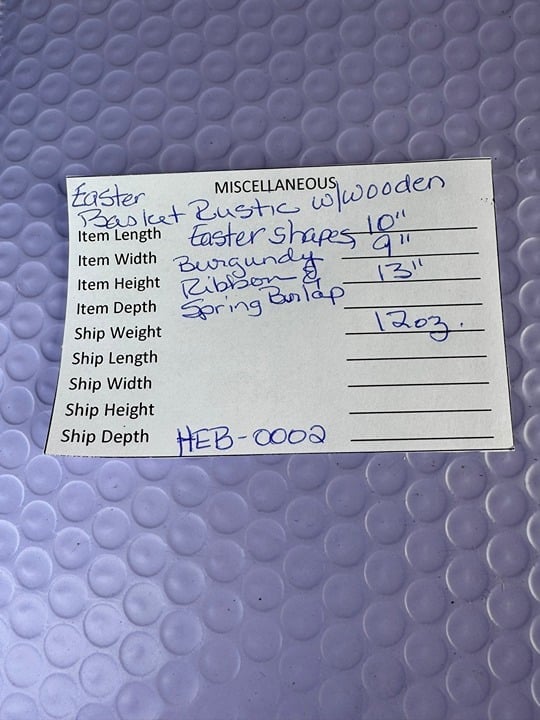 MISCELLANEOUS
Easter
Basket Rustic w/wooden
Item Length Easter Shapes 10"
Item Width Burgundy 9"
Item Height Ribbon & 13"
Item Depth Spring Burlap
Ship Weight 12oz.
Ship Length
Ship Width
Ship Height
Ship Depth HEB-0002